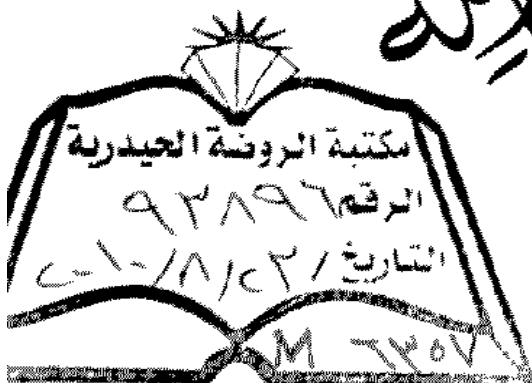 مكتبة الروضة الحيدرية
الرقم ٩٣٨٩٦
التاريخ / ٢٣/٨/٢٠١٠
M ٦٣٥٧